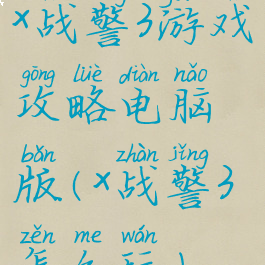 ×战警3游戏
gōng lüè diàn nǎo
攻略电脑
bǎn zhàn jǐng
版(×战警3
zěn me wán
怎么玩)